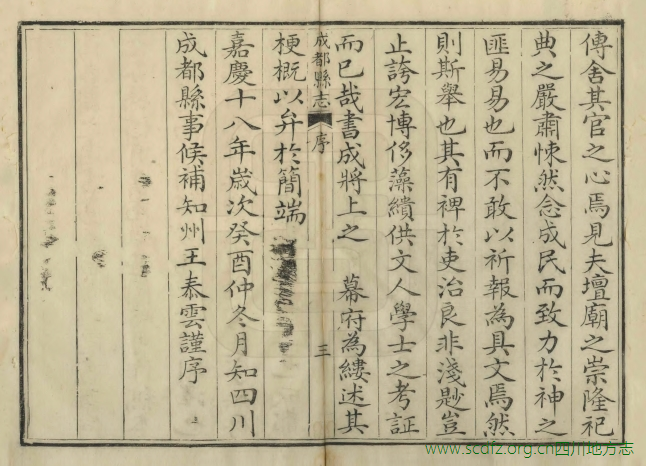 傳舍其官之心焉見夫壇廟之崇隆祀
典之嚴肅悚然念成民而致力於神之
匪易易也而不敢以祈報為具文焉然
則斯舉也其有裨於吏治良非淺尠豈
止誇宏博侈藻繢供文人學士之考証
而已哉書成將上之 幕府為縷述其
成都縣志 序 三
梗概以弁於簡端
嘉慶十八年歲次癸酉仲冬月知四川
成都縣事候補知州王泰雲謹序
www.scdfz.org.cn四川地方志